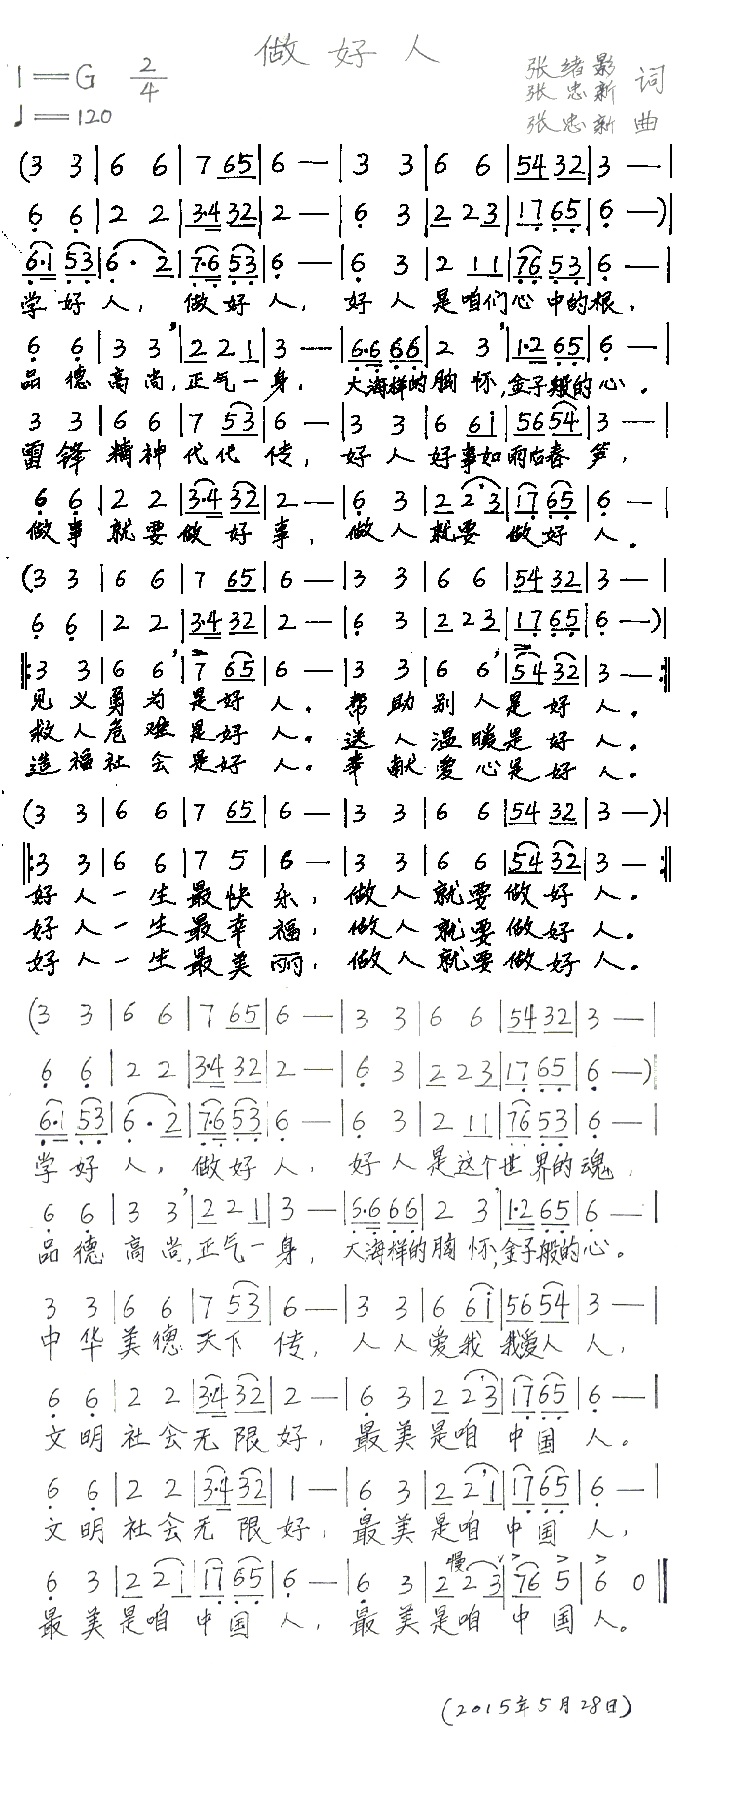 做好人
1=G 2/4
♩=120
张绪影
张忠新 词
张忠新 曲
(3 3 | 6 6 | 7 65 | 6 — | 3 3 | 6 6 | 54 32 | 3 — |
6̣ 6̣ | 2 2 | 3·4 32 | 2 — | 6̣ 3 | 2 23 | 17̣ 6̣5̣ | 6̣ —) |
6̣·1 5̣3̣ | 6̣· 2 | 7̣·6̣ 5̣3̣ | 6̣ — | 6̣ 3 | 2 11 | 7̣6̣ 5̣3̣ | 6̣ — |
学好人，做好人，好人是咱们心中的根，
6̣ 6̣ | 3 3 | 2 2 1 | 3 — | 6̣·6̣ 6̣6̣ | 2 3 | 1·2 6̣5̣ | 6̣ — |
品德高尚，正气一身，大海样的胸怀，金子般的心。
3 3 | 6 6 | 7 53 | 6 — | 3 3 | 6 6i | 56 54 | 3 — |
雷锋精神代代传，好人好事如雨后春笋，
6̣ 6̣ | 2 2 | 3·4 32 | 2 — | 6̣ 3 | 2 2·3 | 17̣ 6̣5̣ | 6̣ — |
做事就要做好事，做人就要做好人。
(3 3 | 6 6 | 7 65 | 6 — | 3 3 | 6 6 | 54 32 | 3 — |
6̣ 6̣ | 2 2 | 3·4 32 | 2 — | 6̣ 3 | 2 23 | 17̣ 6̣5̣ | 6̣ —) |
‖: 3 3 | 6 6 | 7 65 | 6 — | 3 3 | 6 6 | 54 32 | 3 — :‖
见义勇为是好人。帮助别人是好人。
救人危难是好人。送人温暖是好人。
造福社会是好人。奉献爱心是好人。
(3 3 | 6 6 | 7 65 | 6 — | 3 3 | 6 6 | 54 32 | 3 —) |
‖: 3 3 | 6 6 | 7 5 | 6 — | 3 3 | 6 6 | 54 32 | 3 — :‖
好人一生最快乐，做人就要做好人。
好人一生最幸福，做人就要做好人。
好人一生最美丽，做人就要做好人。
(3 3 | 6 6 | 7 65 | 6 — | 3 3 | 6 6 | 54 32 | 3 — |
6̣ 6̣ | 2 2 | 3·4 32 | 2 — | 6̣ 3 | 2 23 | 17̣ 6̣5̣ | 6̣ —) |
6̣·1 5̣3̣ | 6̣· 2 | 7̣·6̣ 5̣3̣ | 6̣ — | 6̣ 3 | 2 11 | 7̣6̣ 5̣3̣ | 6̣ — |
学好人，做好人，好人是这个世界的魂，
6̣ 6̣ | 3 3 | 2 2 1 | 3 — | 6̣·6̣ 6̣6̣ | 2 3 | 1·2 6̣5̣ | 6̣ — |
品德高尚，正气一身，大海样的胸怀，金子般的心。
3 3 | 6 6 | 7 53 | 6 — | 3 3 | 6 6i | 56 54 | 3 — |
中华美德天下传，人人爱我我爱人人，
6̣ 6̣ | 2 2 | 3·4 32 | 2 — | 6̣ 3 | 2 2·3 | 17̣ 6̣5̣ | 6̣ — |
文明社会无限好，最美是咱中国人。
6̣ 6̣ | 2 2 | 3·4 32 | 1 — | 6̣ 3 | 2 2·1 | 17̣ 6̣5̣ | 6̣ — |
文明社会无限好，最美是咱中国人，
6̣ 3 | 2 21 | 17̣ 6̣5̣ | 6̣ — | 6̣ 3 | 慢 2 23 | 76 5 | 6 0 ‖
最美是咱中国人，最美是咱中国人。
(2015年5月28日)